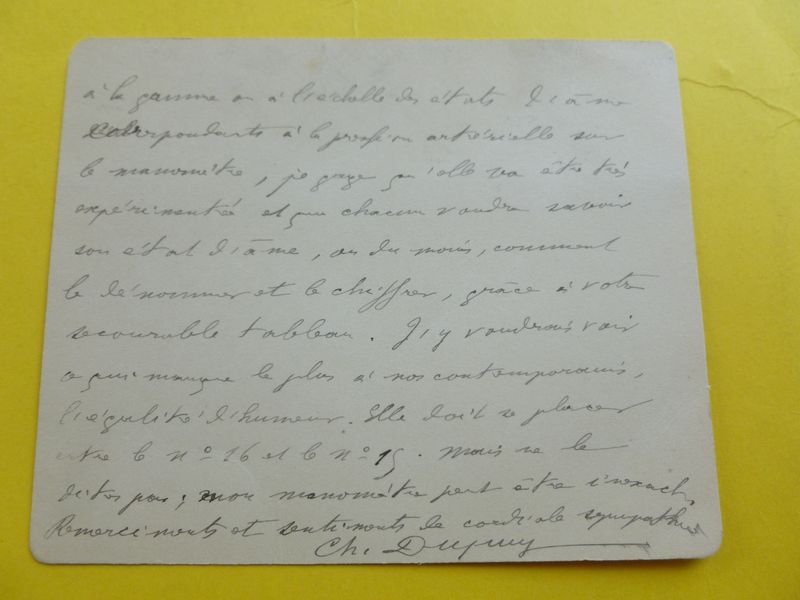 à la gamme ou à l'échelle des états d'âme
correspondants à la pression artérielle sur
le manomètre, je gage qu'elle va être très
expérimentée et que chacun voudra savoir
son état d'âme, ou du moins, comment
le dénommer et le chiffrer, grâce à votre
secourable tableau. J'y voudrais voir
ce qui manque le plus à nos contemporains,
l'égalité d'humeur. Elle doit se placer
entre le nº 16 et le nº 15. Mais ne le
dites pas; mon manomètre peut être inexact.
Remerciments et sentiments de cordiale sympathie
Ch. Dupuy